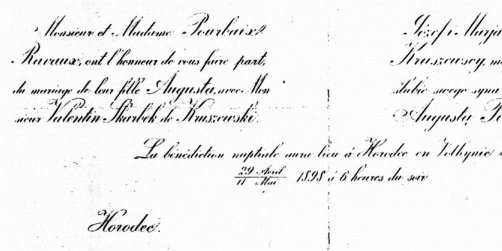 Monsieur et Madame Pourbaix
Ravaux, ont l'honneur de vous faire part,
du mariage de leur fille Augusta, avec Mon
sieur Valentin Skarbek de Kruszewski.
Józef i Marja
Kruszewscy,
ślubie swego syna
Augustą
La bénédiction nuptiale aura lieu à Horodec en Volhynie
29 Avril
11 Mai
1898 à 6 heures du soir
Horodec.